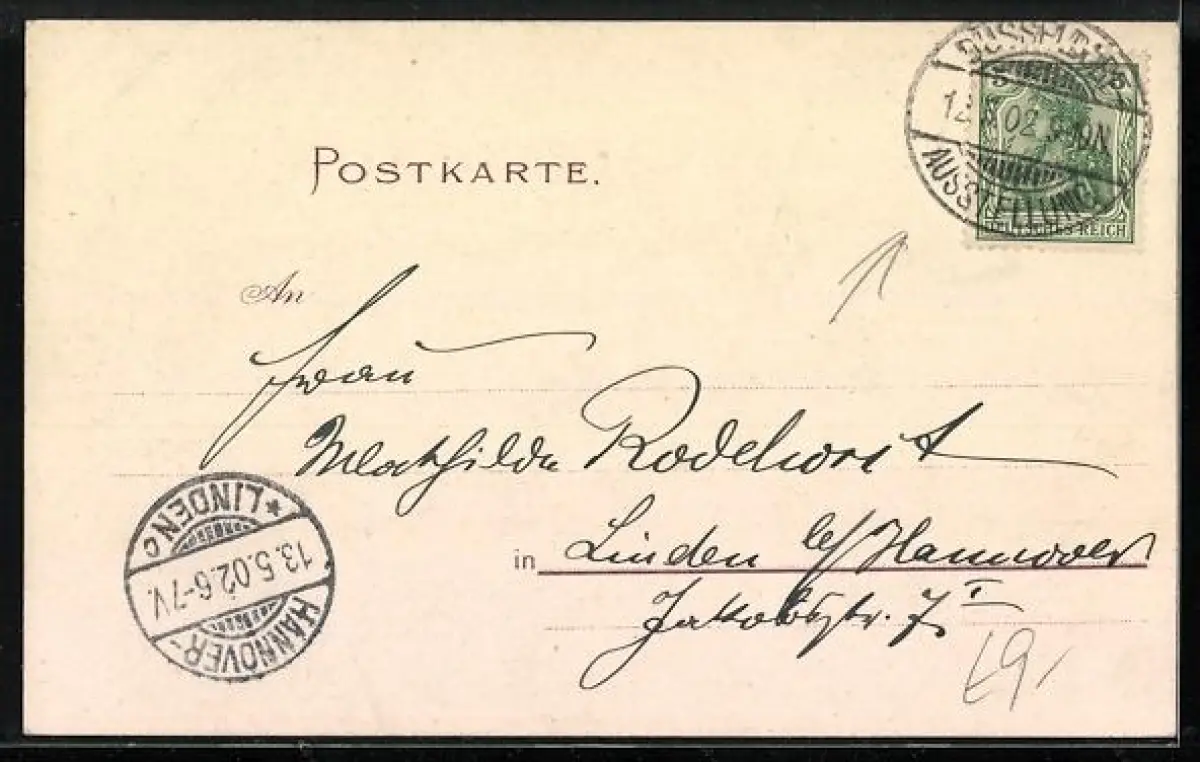 DÜSSELDORF
12.5.02 8-9N
AUSSTELLUNG
DEUTSCHES REICH
POSTKARTE.
An
Frau
Mathilde Rodehorst
in Linden b/ Hannover
Jakobstr. 7 I
*LINDEN c
13.5.02.6-7V.
HANNOVER-